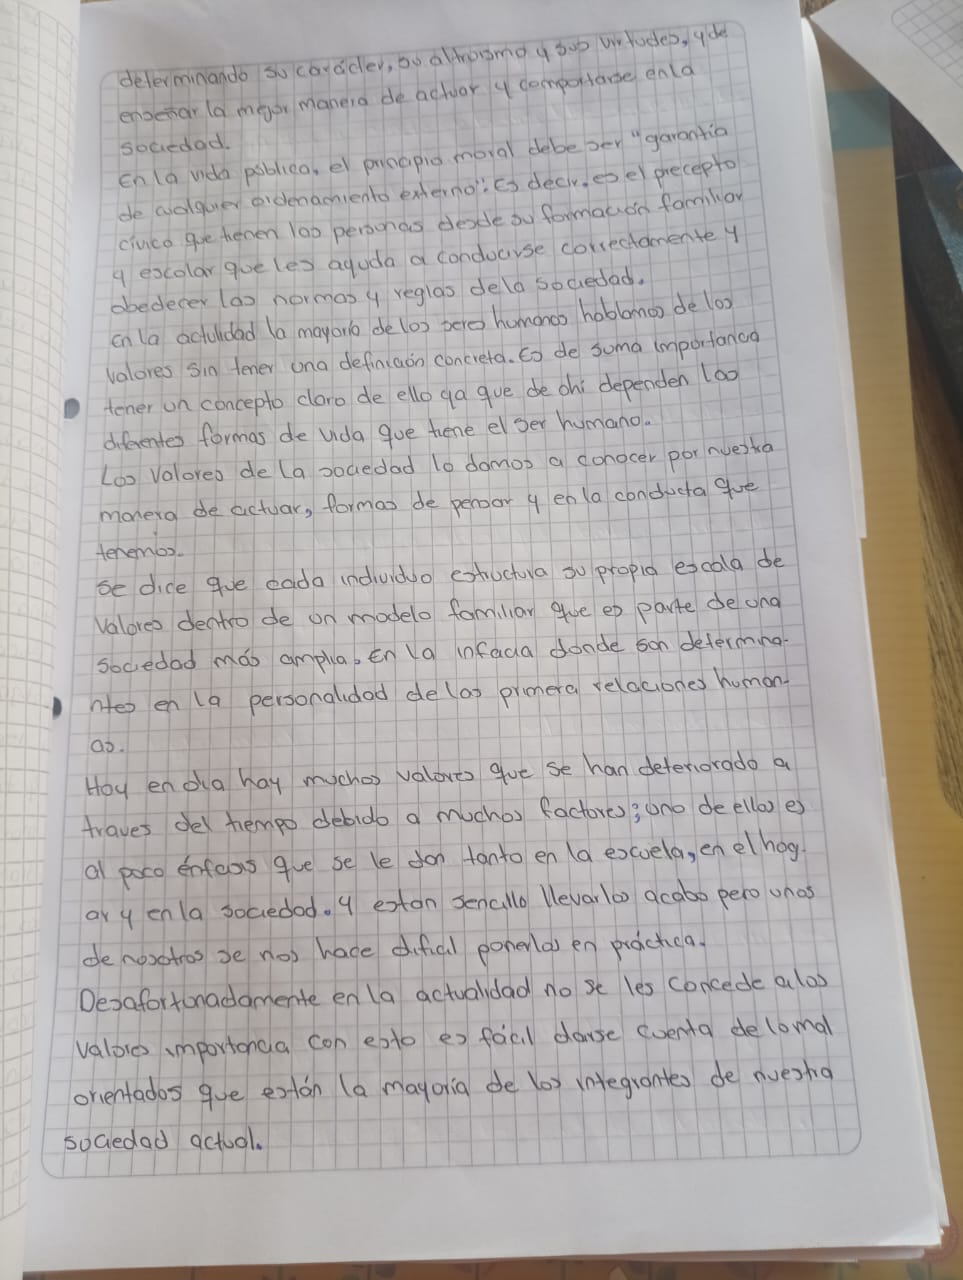 determinando su carácter, su altruismo y sus virtudes, y de
enseñar la mejor manera de actuar y comportarse en la
sociedad.
En la vida pública, el principio moral debe ser "garantía
de cualquier ordenamiento externo": Es decir, es el precepto
cívico que tienen las personas desde su formación familiar
y escolar que les ayuda a conducirse correctamente y
obedecer las normas y reglas de la sociedad.
En la actulidad la mayoría de los seres humanos hablamos de los
valores sin tener una definición concreta. Es de suma importancia
tener un concepto claro de ello ya que de ahi dependen las
diferentes formas de vida que tiene el ser humano.
Los valores de la sociedad lo damos a conocer por nuestra
manera de actuar, formas de pensar y en la conducta que
tenemos.
Se dice que cada individuo estructura su propia escala de
valores dentro de un modelo familiar que es parte de una
sociedad más amplia. En la infacia donde son determina-
ntes en la personalidad de las primera relaciones human-
as.
Hoy en dia hay muchos valores que se han deteriorado a
traves del tiempo debido a muchos factores; uno de ellos es
al poco énfasis que se le dan tanto en la escuela, en el hog-
ar y en la sociedad. y estan sencillo llevarlos acabo pero unos
de nosotros se nos hace dificil ponerlos en práctica.
Desafortunadamente en la actualidad no se les concede a los
valores importancia con esto es fácil darse cuenta de lo mal
orientados que están la mayoría de los integrantes de nuestra
sociedad actual.